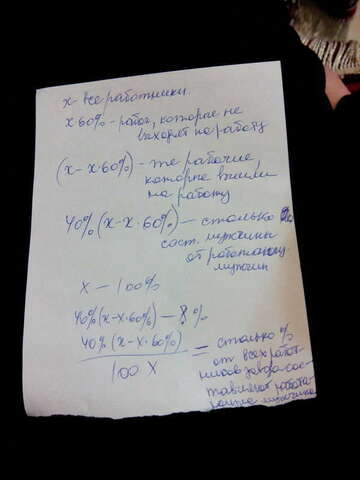 x - все работники.
x 60% - рабоч, которые не
выходят на работу
(x - x·60%) - те рабочие,
которые вышли
на работу
40%(x - x·60%) — столько
сост. мужчины
от работающих
мужчин
x — 100%
40%(x - x·60%) — %
40%(x - x·60%) / 100 x = столько %
от всех работ
ников завода сос
тавляют работа
мужчины